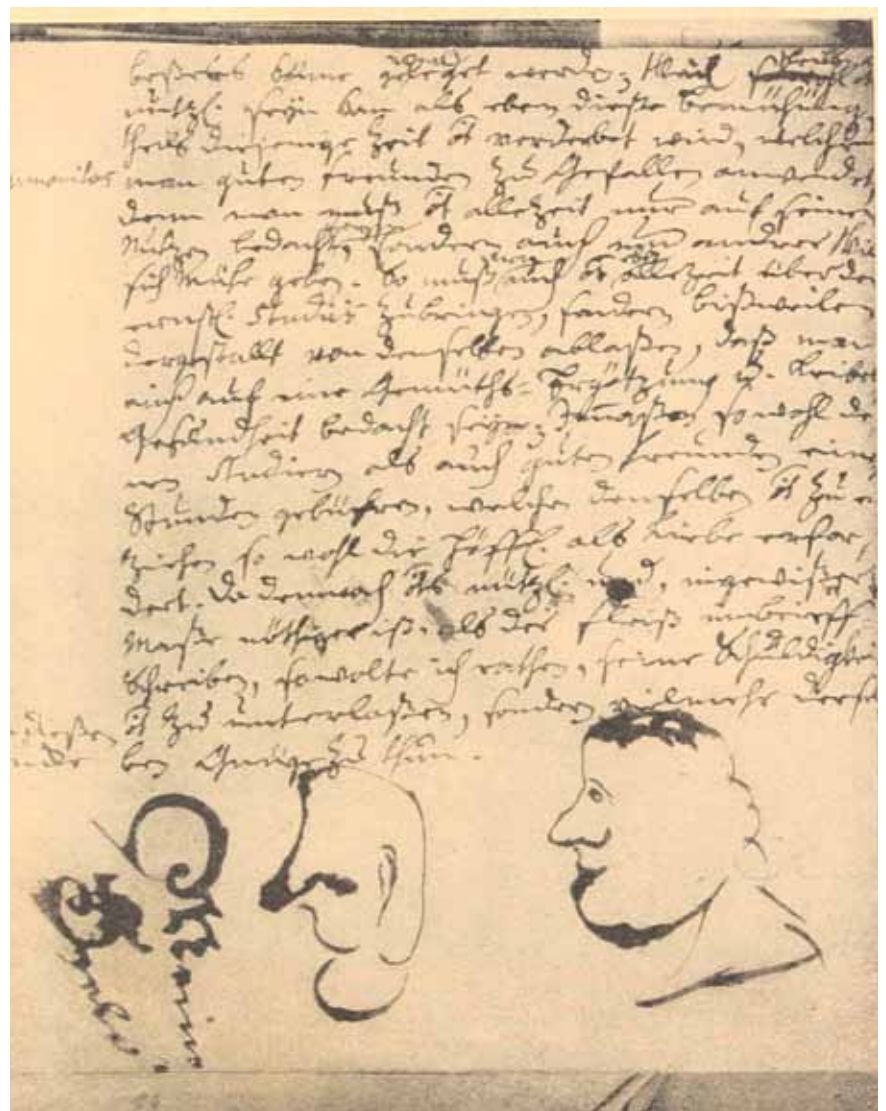 beßeres könne geleget werden, Weil
nützl. seyn kan als eben dieße bemühung,
theils diejenige Zeit nt verderbet wird, welche
man guten Freunden zu Gefallen anwendet,
denn man muß nt allezeit nur auf seinen
Nutzen bedacht, sondern auch um andrer Wil
sich Mühe geben. So muß auch nt allezeit über den
ernstl. Studiis zubringen, sondern bißweilen
dergestallt von denselben ablaßen, daß man
auch auf eine Gemüths-Ergötzung u. Leibes
Gesundheit bedacht seyn, immaßen sowohl de
nen Studien als auch guten Freunden eini
Stunden gebühren, welche denselben nt zu e
ziehen so wohl die Höffl. als Liebe erfor,
dert. Da demnach nts nützl. und, in gewißer
Maße nöthiger ist, als der Fleiß im brieff
Schreiben, so wolte ich rathen, seine Schuldigkei
nt zu unterlaßen, sondern vielmehr dersel
ben Gnüge zu thun.